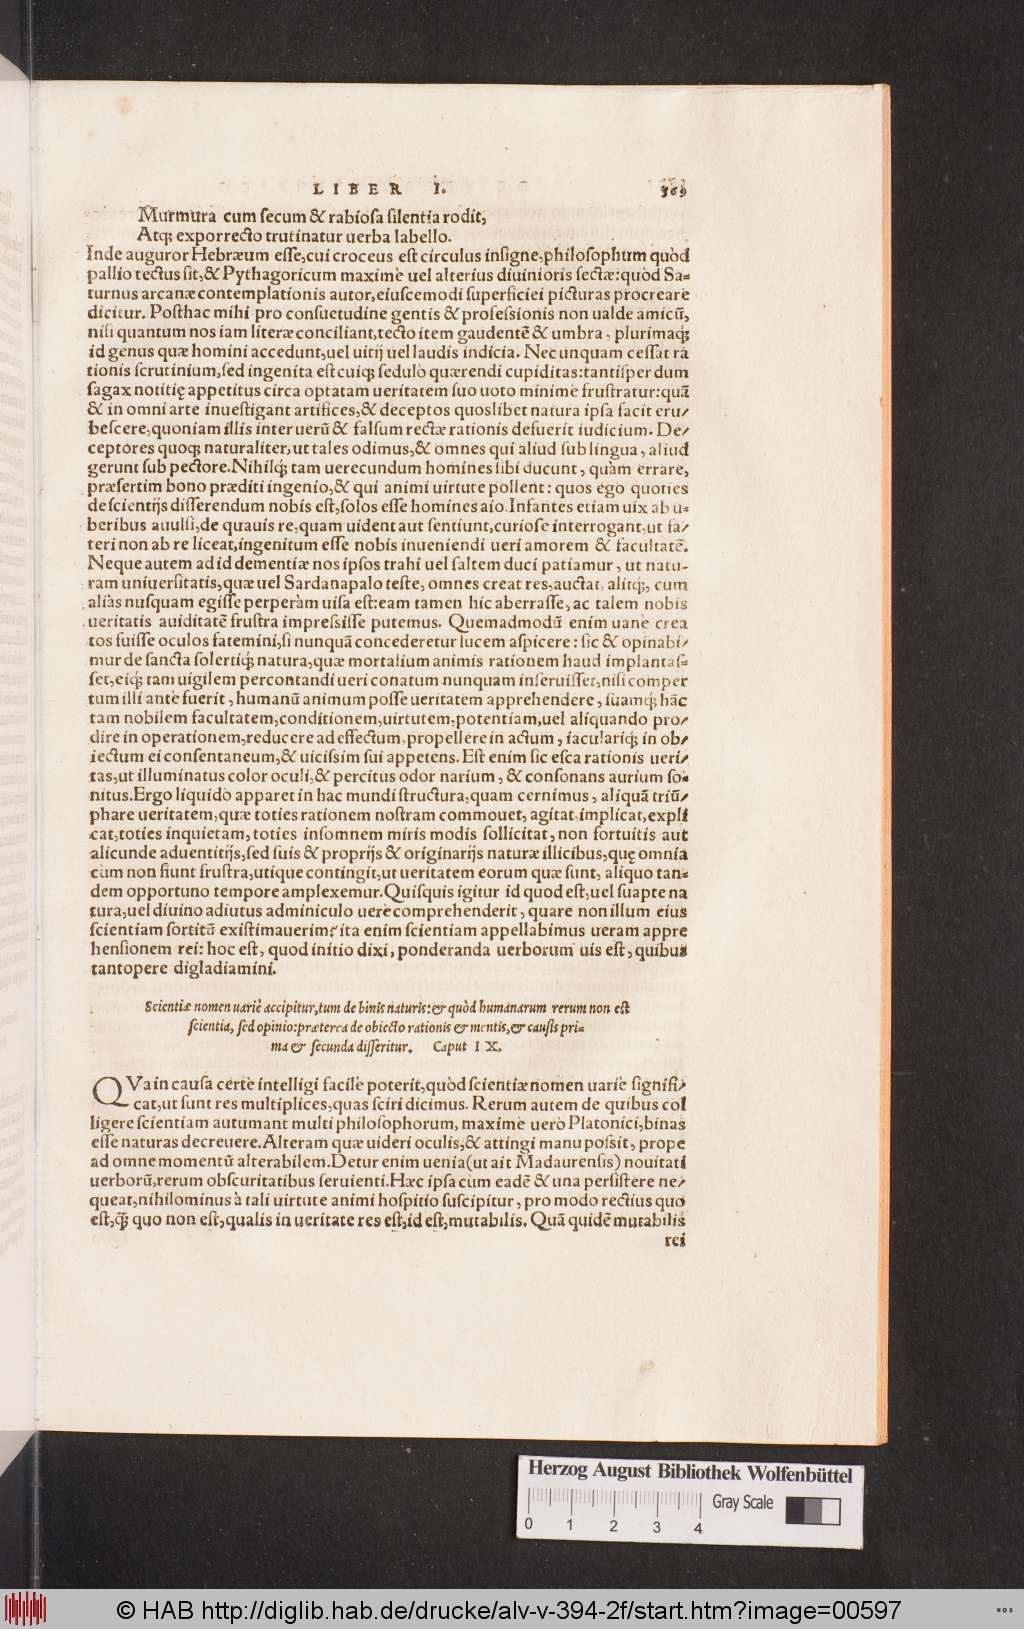 LIBER I. 369
Murmura cum secum & rabiosa silentia rodit,
Atq; exporrecto trutinatur uerba labello.
Inde auguror Hebræum esse, cui croceus est circulus insigne, philosophum quòd
pallio tectus sit, & Pythagoricum maximè uel alterius diuinioris sectæ: quòd Sa-
turnus arcanæ contemplationis autor, eiuscemodi superficiei picturas procreare
dicitur. Posthac mihi pro consuetudine gentis & professionis non ualde amicũ,
nisi quantum nos iam literæ conciliant, tecto item gaudentẽ & umbra, plurimaq;
id genus quæ homini accedunt, uel uitij uel laudis indicia. Nec unquam cessat ra
tionis scrutinium, sed ingenita est cuiq; sedulò quærendi cupiditas: tantisper dum
sagax notitię appetitus circa optatam ueritatem suo uoto minimè frustratur: quã
& in omni arte inuestigant artifices, & deceptos quoslibet natura ipsa facit eru-
bescere, quoniam illis inter uerũ & falsum rectæ rationis defuerit iudicium. De-
ceptores quoq; naturaliter, ut tales odimus, & omnes qui aliud sub lingua, aliud
gerunt sub pectore. Nihilq; tam uerecundum homines sibi ducunt, quàm errare,
præsertim bono præditi ingenio, & qui animi uirtute pollent: quos ego quoties
de scientijs disserendum nobis est, solos esse homines aio. Infantes etiam uix ab u-
beribus auulsi, de quauis re, quam uident aut sentiunt, curiose interrogant, ut fa-
teri non ab re liceat, ingenitum esse nobis inueniendi ueri amorem & facultatẽ.
Neque autem ad id dementiæ nos ipsos trahi uel saltem duci patiamur, ut natu-
ram uniuersitatis, quæ uel Sardanapalo teste, omnes creat res, auctat, alitq;, cum
aliàs nusquam egisse perperàm uisa est: eam tamen hic aberrasse, ac talem nobis
ueritatis auiditatẽ frustra impressisse putemus. Quemadmodũ enim uane crea
tos fuisse oculos fatemini, si nunquã concederetur lucem aspicere: sic & opinabi-
mur de sancta solertiq; natura, quæ mortalium animis rationem haud implantas-
set, eiq; tam uigilem percontandi ueri conatum nunquam inseruisset, nisi comper
tum illi ante fuerit, humanũ animum posse ueritatem apprehendere, suamq; hãc
tam nobilem facultatem, conditionem, uirtutem, potentiam, uel aliquando pro-
dire in operationem, reducere ad effectum, propellere in actum, iaculariq; in ob-
iectum ei consentaneum, & uicissim sui appetens. Est enim sic esca rationis ueri-
tas, ut illuminatus color oculi, & percitus odor narium, & consonans aurium so-
nitus. Ergo liquidò apparet in hac mundi structura, quam cernimus, aliquã triũ-
phare ueritatem, quæ toties rationem nostram commouet, agitat, implicat, expli
cat, toties inquietam, toties insomnem miris modis sollicitat, non fortuitis aut
alicunde aduentitijs, sed suis & proprijs & originarijs naturæ illicibus, quę omnia
cùm non fiunt frustra, utique contingit, ut ueritatem eorum quæ sunt, aliquo tan-
dem opportuno tempore amplexemur. Quisquis igitur id quod est, uel suapte na
tura, uel diuino adiutus adminiculo uerè comprehenderit, quare non illum eius
scientiam sortitũ existimauerim? ita enim scientiam appellabimus ueram appre
hensionem rei: hoc est, quod initio dixi, ponderanda uerborum uis est, quibus
tantopere digladiamini.
Scientiæ nomen uariè accipitur, tum de binis naturis: & quòd humanarum rerum non est
scientia, sed opinio: præterea de obiecto rationis & mentis, & causis pri-
ma & secunda disseritur. Caput IX.
QVa in causa certè intelligi facilè poterit, quòd scientiæ nomen uariè signifi-
cat, ut sunt res multiplices, quas sciri dicimus. Rerum autem de quibus col
ligere scientiam autumant multi philosophorum, maximè uerò Platonici, binas
esse naturas decreuere. Alteram quæ uideri oculis, & attingi manu possit, prope
ad omne momentũ alterabilem. Detur enim uenia (ut ait Madaurensis) nouitati
uerborũ, rerum obscuritatibus seruienti. Hæc ipsa cùm eadẽ & una persistere ne-
queat, nihilominus à tali uirtute animi hospitio suscipitur, pro modo rectius quo
est, q̃ quo non est, qualis in ueritate res est, id est, mutabilis. Quã quidẽ mutabilis
rei
Herzog August Bibliothek Wolfenbüttel
Gray Scale
0 1 2 3 4
© HAB http://diglib.hab.de/drucke/alv-v-394-2f/start.htm?image=00597